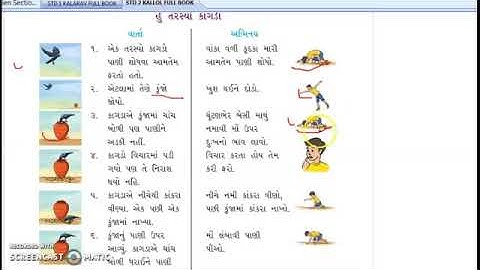 STD 3 KALARAV FULL BOOK
STD 2 KALLOL FULL BOOK
હું તરસ્યો કાગડો
વાર્તા
અભિનય
૧. એક તરસ્યો કાગડો
પાણી શોધવા આમતેમ
ફરતો હતો.
વાંકા વળી કૂદકા મારી
આમતેમ પાણી શોધો.
૨. એટલામાં તેણે કુંજો
જોયો.
ખુશ થઈને દોડો.
૩. કાગડાએ કુંજામાં ચાંચ
બોળી પણ પાણીને
અડકી નહીં.
ઘૂંટણભેર બેસી માથું
નમાવી મોં ઉપર
દુઃખનો ભાવ લાવો.
૪. કાગડો વિચારમાં પડી
ગયો પણ તે નિરાશ
થયો નહિ.
વિચાર કરતા હોય તેમ
કરી ફરો.
૫. કાગડાએ નીચેથી કાંકરા
વીણ્યા. એક પછી એક
કુંજામાં નાખ્યા.
નીચે નમી કાંકરા વીણો,
પાછી કુંજામાં કાંકરા નાખો.
૬. કુંજાનું પાણી ઉપર
આવ્યું. કાગડાએ ચાંચ
બોળી ધરાઈને પાણી
મોં લંબાવી પાણી
પીઓ.
RECORDED WITH
SCREENCAST MATIC